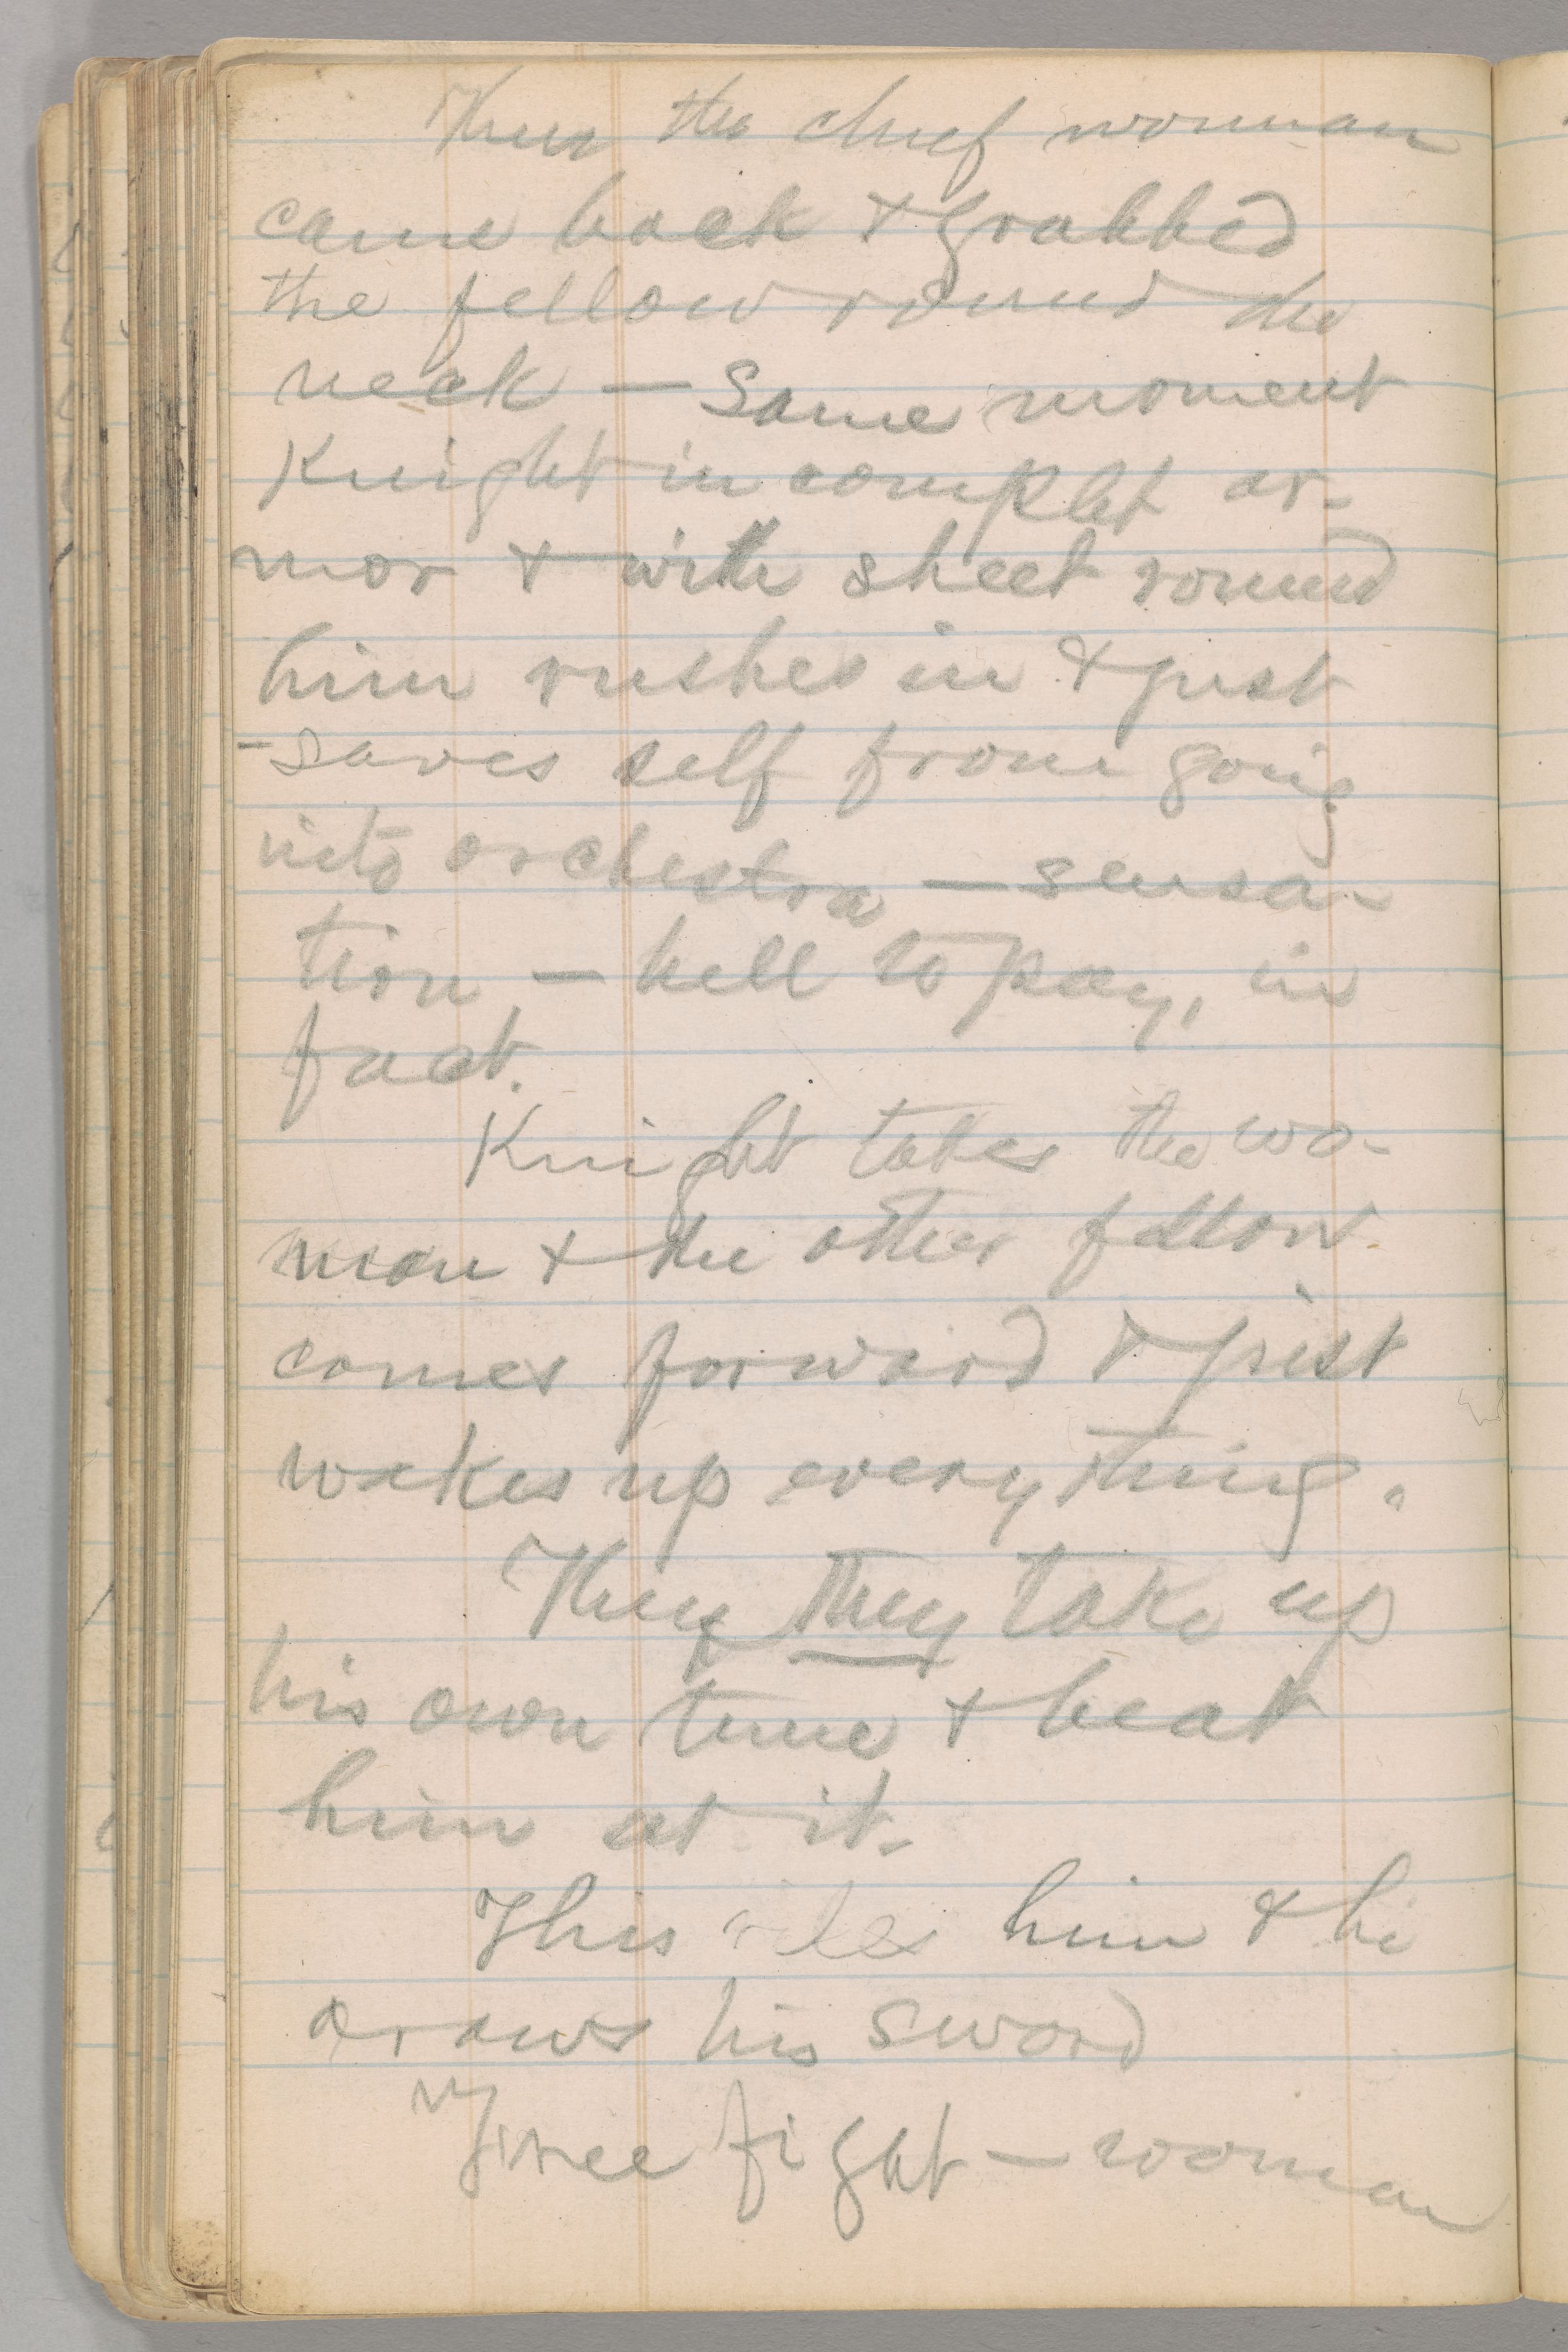 Then the chief woman
came back & grabbed
the fellow round the
neck — Same moment
Knight in complet ar-
mor & with sheet round
him rushes in & just
saves self from going
into orchestra — sensa-
tion — hell to pay, in
fact.
Knight takes the wo-
man & the other fellow
comes forward & just
wakes up everything.
They they take up
his own tune & beat
him at it.
This riles him & he
draws his sword
Free fight — woman